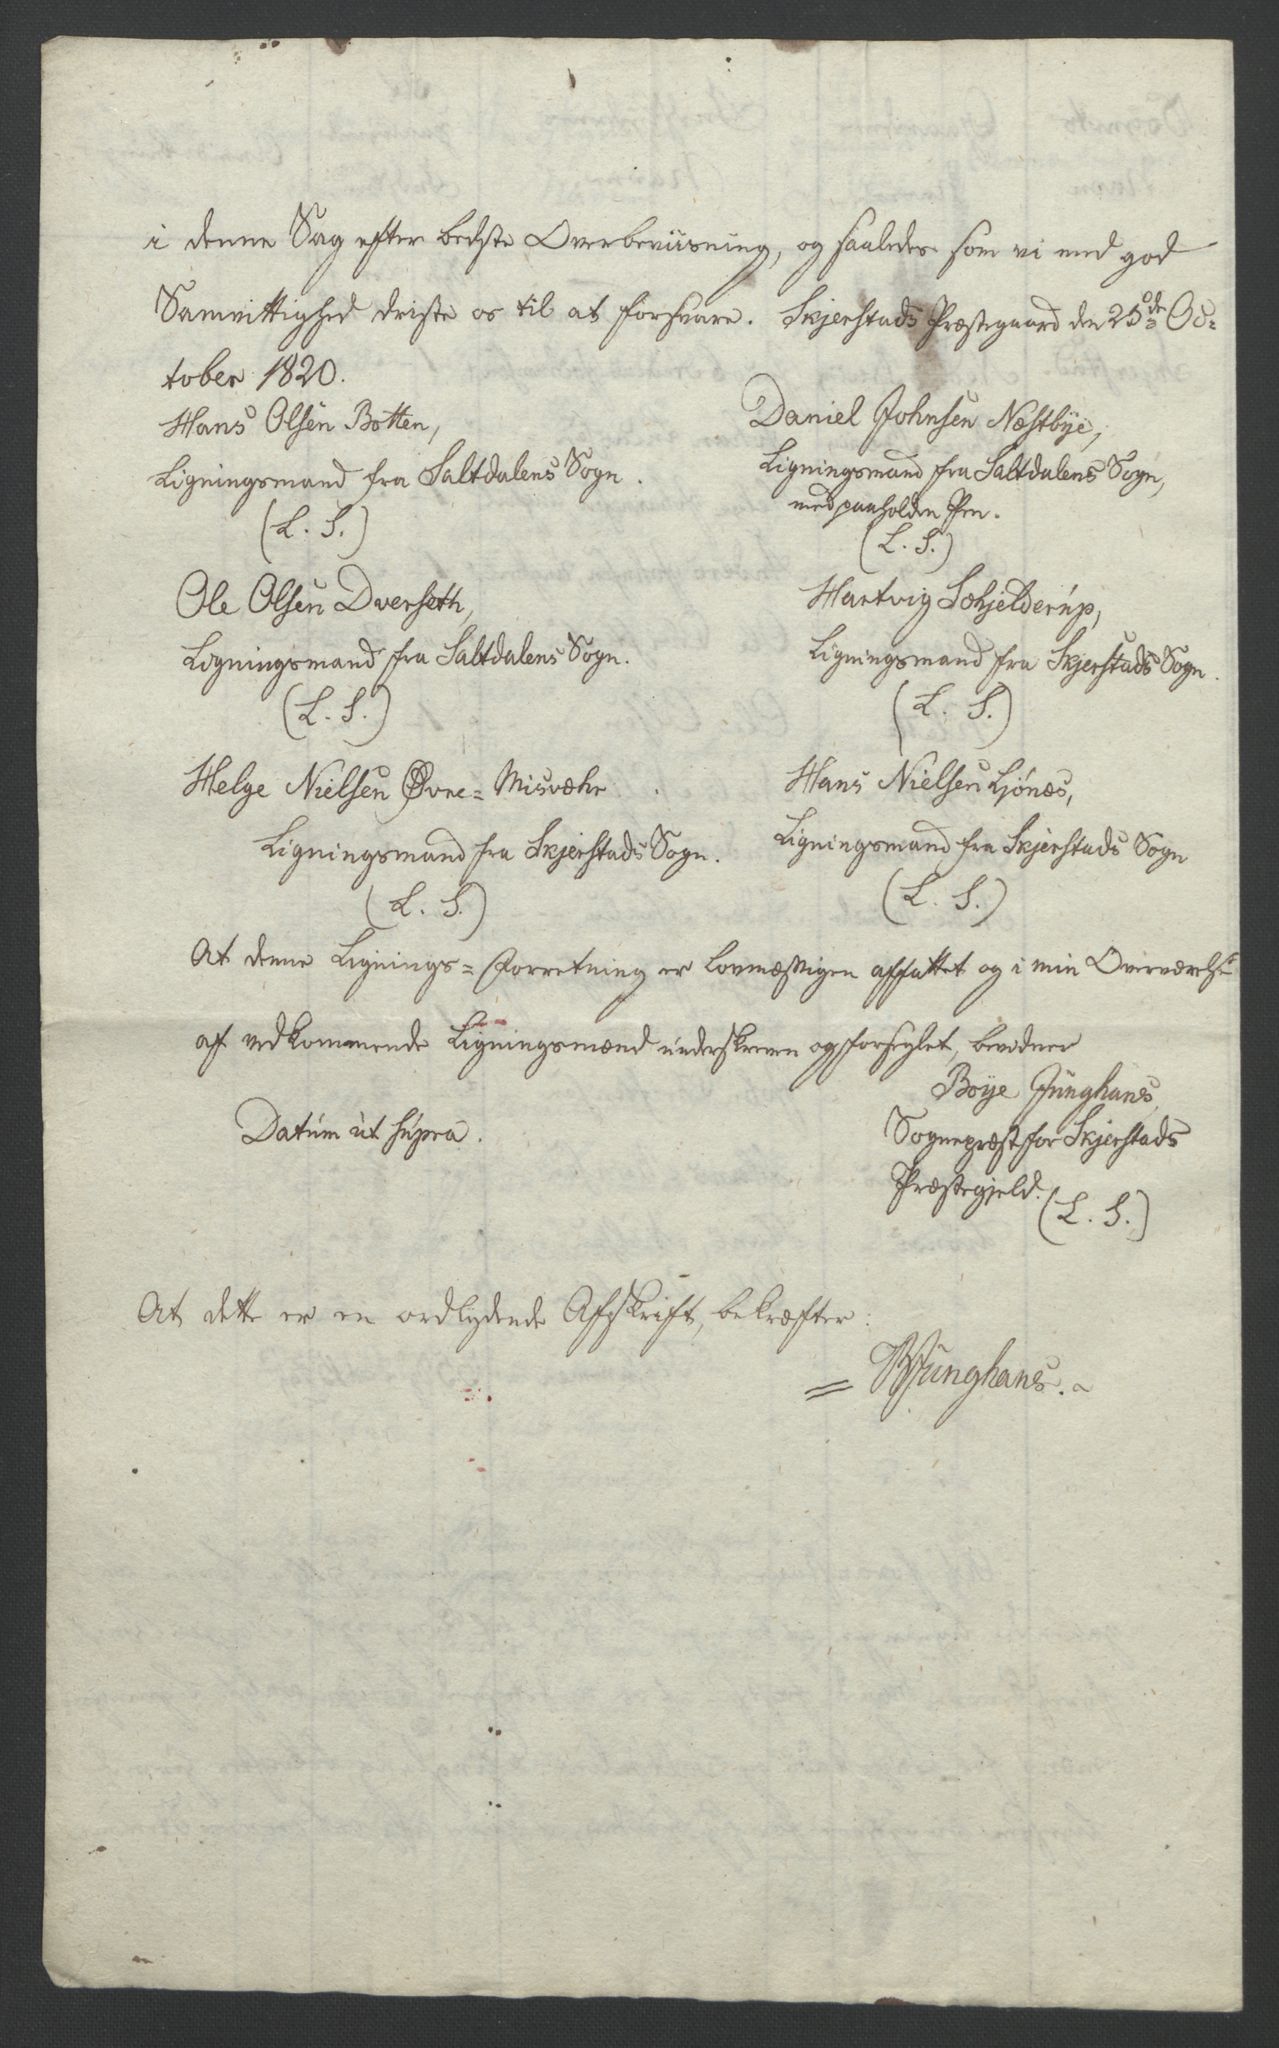 i denne Sag efter bedste Overbeviisning, og saaledes som vi med god
Samvittighed driste os til at forsvare. Skjerstads Præstegaard den 25de Oc-
tober 1820.
Hans Olsen Botten,
Ligningsmand fra Saltdalens Sogn.
(L. S.)
Daniel Johnsen Næstbye,
Ligningsmand fra Saltdalens Sogn,
med paaholden Pen.
(L. S.)
Ole Olsen Dverseth,
Ligningsmand fra Saltdalens Sogn.
(L. S.)
Hartvig Schjelderup,
Ligningsmand fra Skjerstads Sogn.
(L. S.)
Helge Nielsen Øvre-Misvæhr
Ligningsmand fra Skjerstads Sogn.
(L. S.)
Hans Nielsen Ljønæs,
Ligningsmand fra Skjerstads Sogn
(L. S.)
At denne Lignings-Forretning er lovmæssigen affattet og i min Overværelse
af vedkommende Ligningsmænd underskreven og forseglet, bevidner
Boye Junghans,
Datum ut supra.
Sognepræst for Skjerstads
Præstegjeld.
(L. S.)
At dette er en ordlydende Afskrift, bekræfter:
= BJunghans.